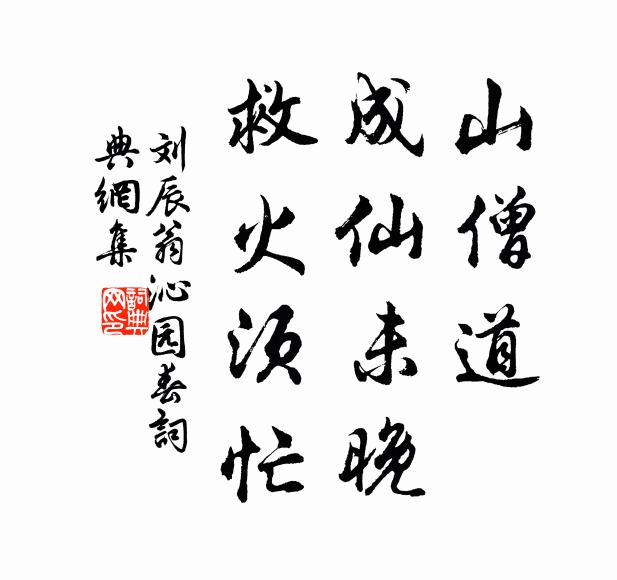 山僧道
成仙未晚
救火须忙
刘辰翁沁园春詞
典網集
詞典網印